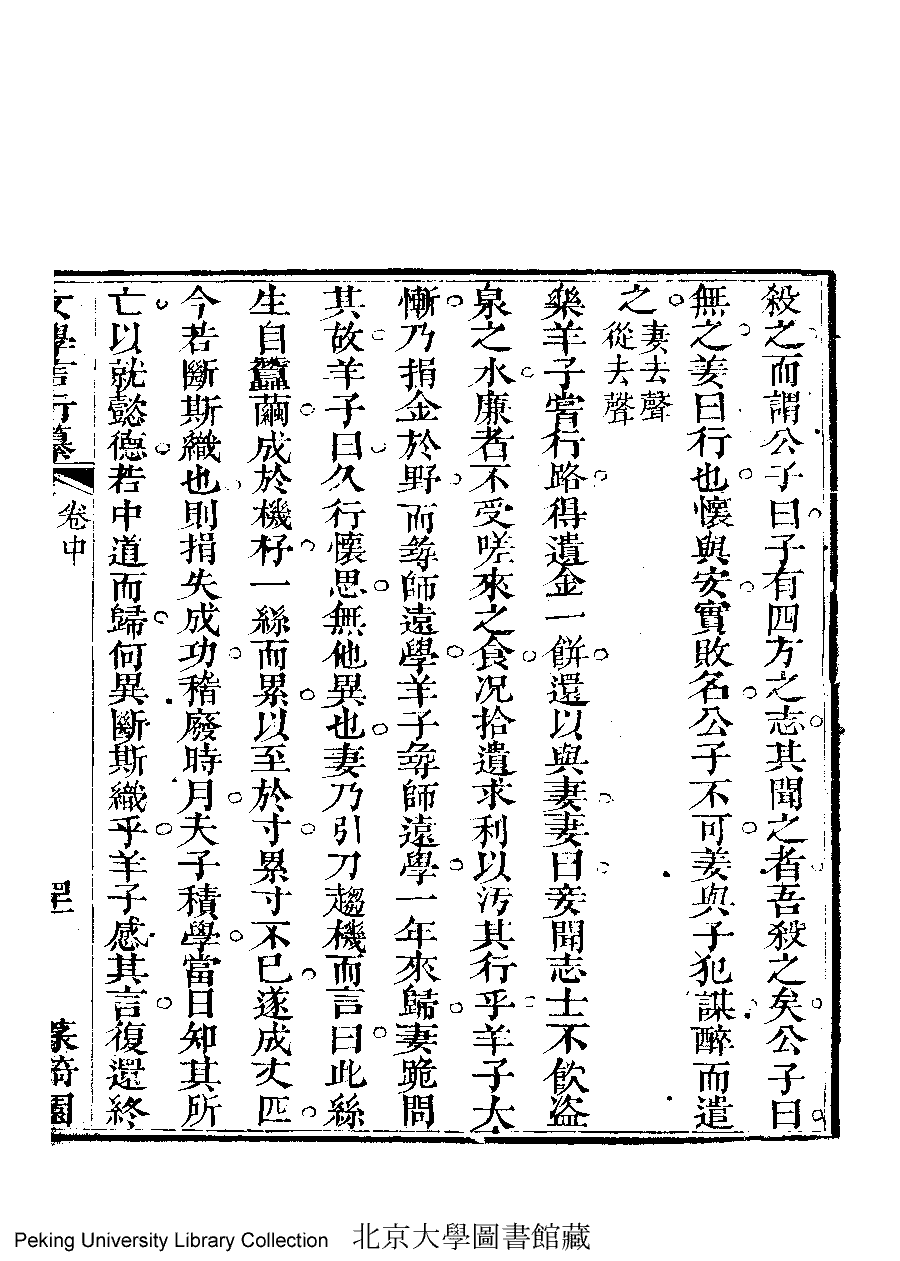 殺之而謂公子曰子有四方之志其聞之者吾殺之矣公子曰
無之姜曰行也懷與安實敗名公子不可姜與子犯謀醉而遣
之妻去聲從去聲
樂羊子嘗行路得遺金一餅還以與妻妻曰妾聞志士不飲盜
泉之水廉者不受嗟來之食况拾遺求利以汚其行乎羊子大
慚乃捐金於野而尋師遠學羊子尋師遠學一年來歸妻跪問
其故羊子曰久行懷思無他異也妻乃引刀趨機而言曰此絲
生自蠶繭成於機杼一絲而累以至於寸累寸不已遂成丈匹
今若斷斯織也則捐失成功稽廢時月夫子積學當日知其所
亡以就懿德若中道而歸何異斷斯織乎羊子感其言復還終
女學言行纂
卷中
篆猗園
Peking University Library Collection 北京大學圖書館藏